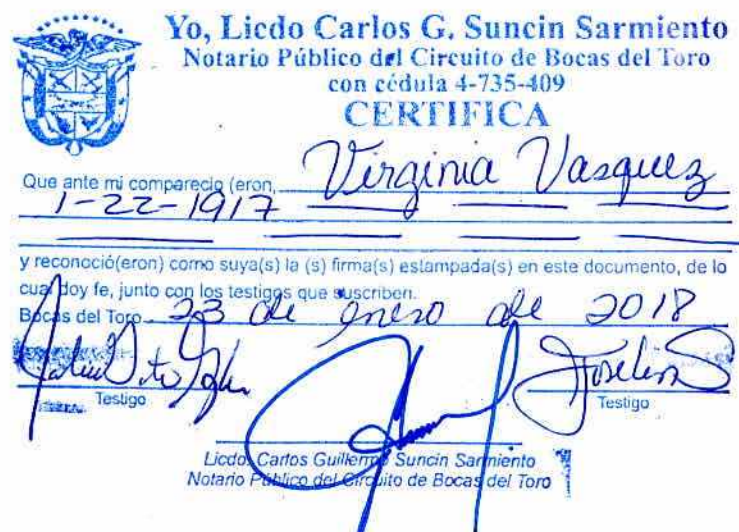 Yo, Licdo Carlos G. Suncin Sarmiento
Notario Público del Circuito de Bocas del Toro
con cédula 4-735-409
CERTIFICA
Que ante mi compareció (eron, Virginia Vasquez
1-22-1917
y reconoció(eron) como suya(s) la (s) firma(s) estampada(s) en este documento, de lo
cual doy fe, junto con los testigos que suscriben.
Bocas del Toro 23 de enero de 2018
Testigo Testigo
Licdo. Carlos Guillermo Suncin Sarmiento
Notario Público del Circuito de Bocas del Toro